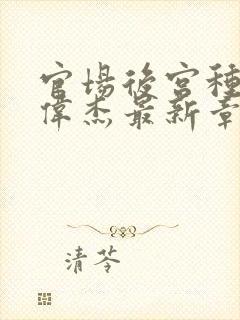 官場後宮種
偉杰最新章
清苓